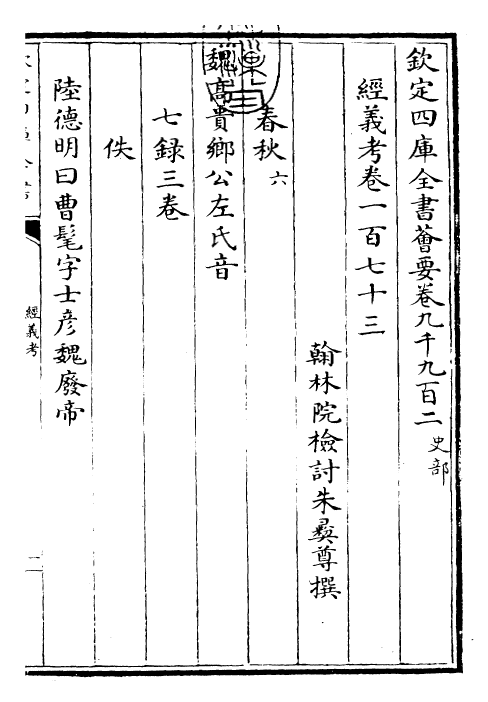 欽定四庫全書薈要卷九千九百二 史部
經義考卷一百七十三
翰林院檢討朱彝尊撰
春秋 六
魏高貴鄉公左氏音
七録三卷
佚
陸德明曰曹髦字士彦魏廢帝
經義考